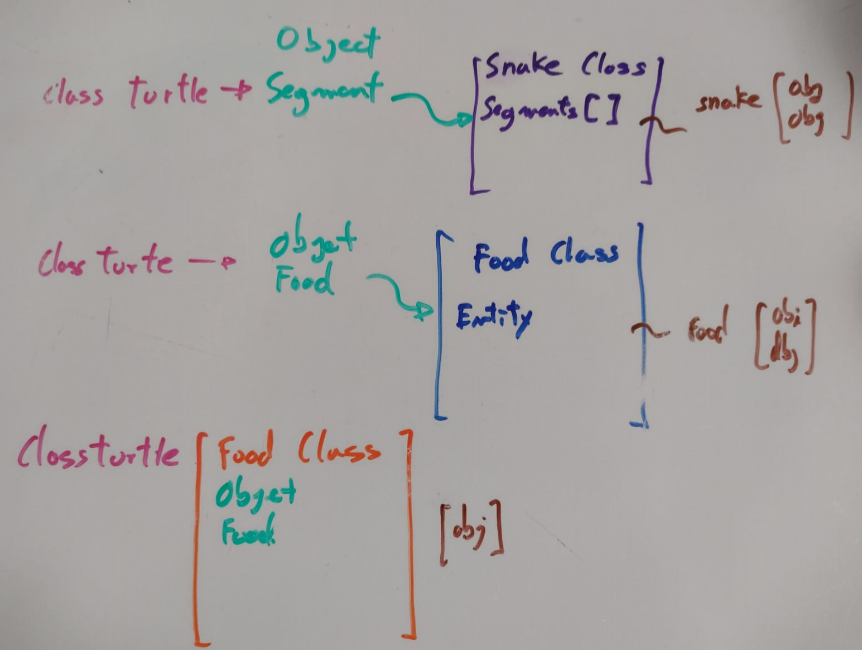 Object
Class Turtle → Segment
Snake Class
Segments []
snake [obj
obj]
Class Turte → Objet
Food
Food Class
Entity
Food [obj
obj]
Class turtle
Food Class
Objet
Food
[obj]